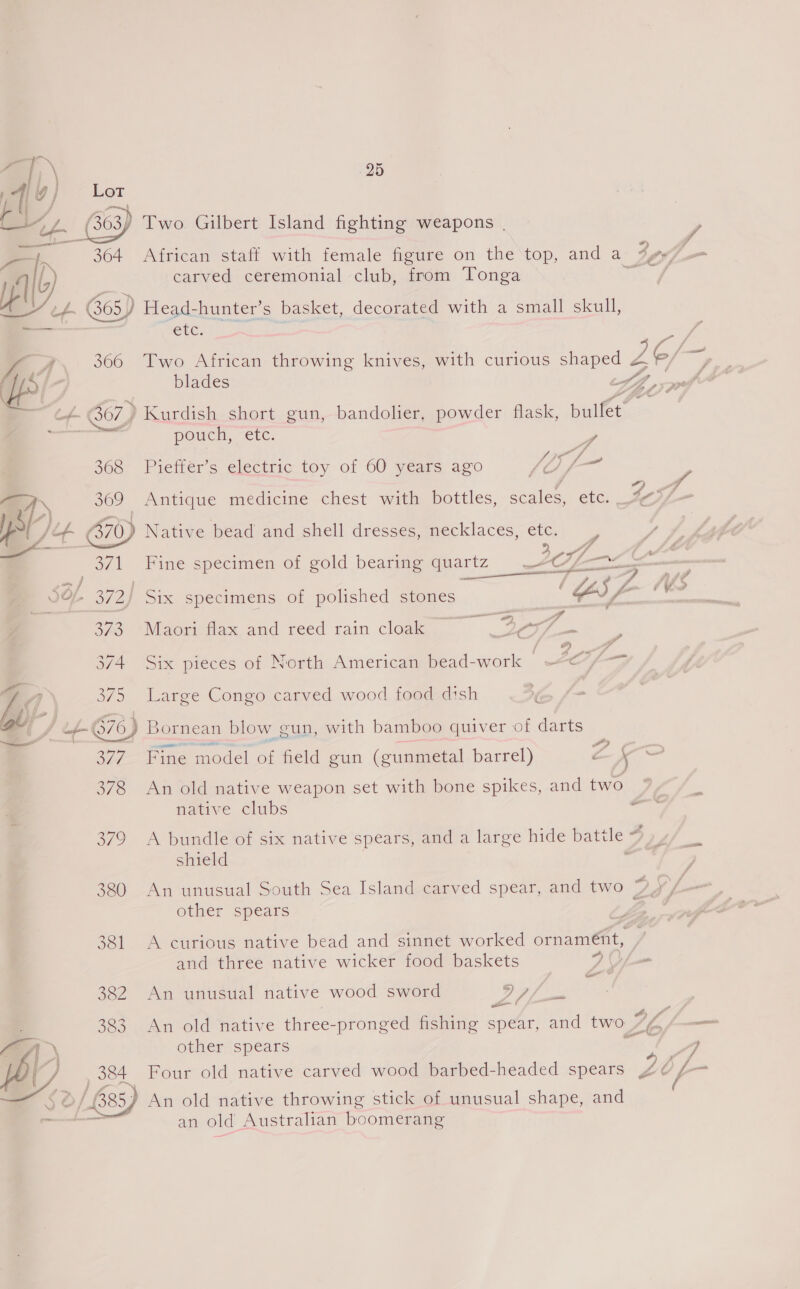 25
Lot
363 Two Gilbert Island fighting weapons
364 African staff with female figure on the top, and a
carved ceremonial club, from Tonga
365 Head-hunter's basket, decorated with a small skull,
etc.
366 Two African throwing knives, with curious shaped
blades
367 Kurdish short gun, bandolier, powder flask, bullet
pouch, etc.
368 Pieffer's electric toy of 60 years ago
369 Antique medicine chest with bottles, scales, etc.
370 Native bead and shell dresses, necklaces, etc.
371 Fine specimen of gold bearing quartz
372 Six specimens of polished stones
373 Maori flax and reed rain cloak
374 Six pieces of North American bead-work
375 Large Congo carved wood food dish
376 Bornean blow gun, with bamboo quiver of darts
377 Fine model of field gun (gunmetal barrel)
378 An old native weapon set with bone spikes, and two
native clubs
379 A bundle of six native spears, and a large hide battle
shield
380 An unusual South Sea Island carved spear, and two
other spears
381 A curious native bead and sinnet worked ornament,
and three native wicker food baskets
382 An unusual native wood sword
383 An old native three-pronged fishing spear, and two
other spears
384 Four old native carved wood barbed-headed spears
385 An old native throwing stick of unusual shape, and
an old Australian boomerang